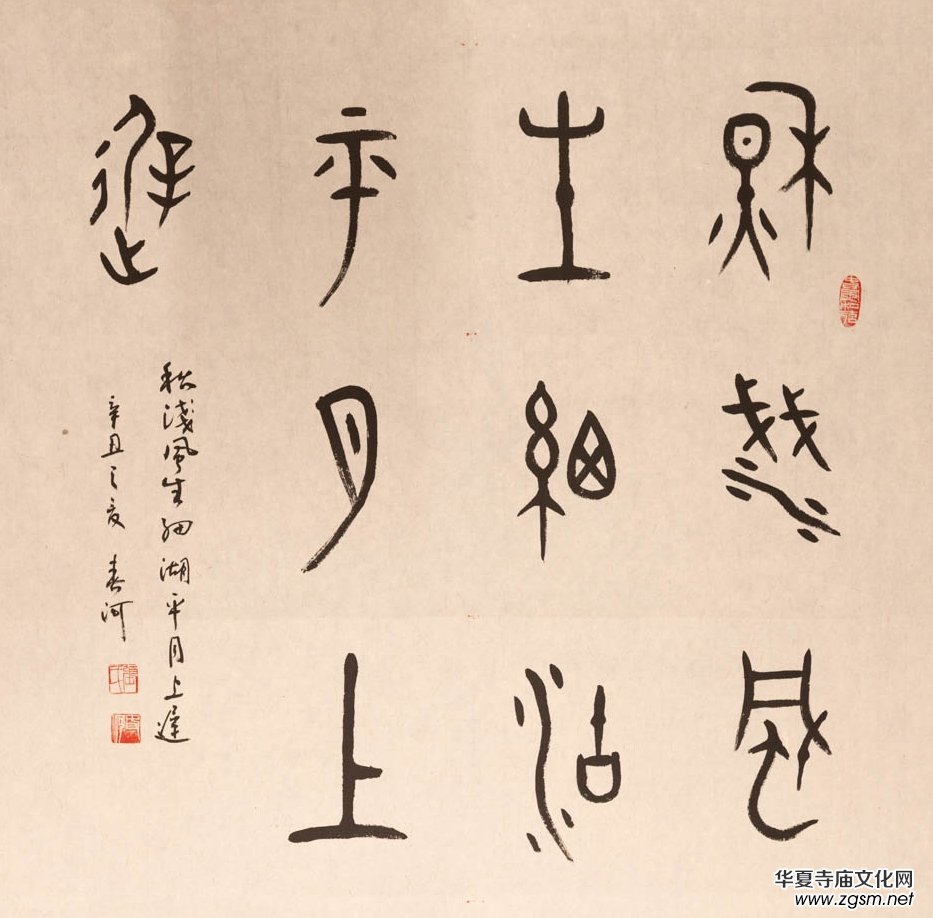 秋淺風
生細湖
平月上
遲
秋淺風生細湖平月上遲
辛丑之夏 春河
华夏寺庙文化网
www.zgsm.net